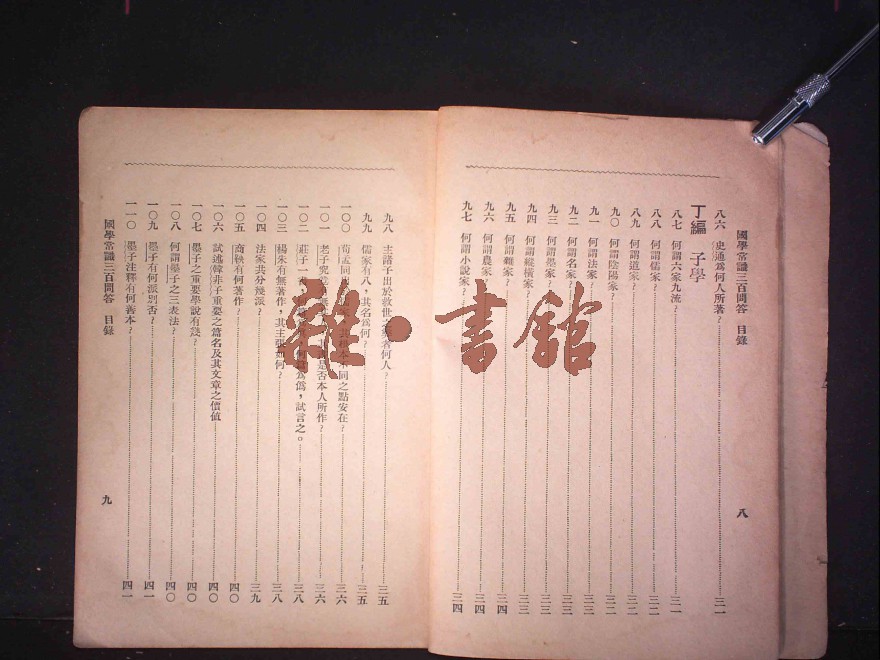 國學常識三百問答　目錄
八
八六　史通爲何人所著？……三一
丁編　子學
八七　何謂六家九流？……三一
八八　何謂儒家？……三二
八九　何謂道家？……三二
九〇　何謂陰陽家？……三二
九一　何謂法家？……三三
九二　何謂名家？……三三
九三　何謂墨家？……三三
九四　何謂縱橫家？……三三
九五　何謂雜家？……三四
九六　何謂農家？……三四
九七　何謂小說家？……三四
九八　主諸子出於救世之　者何人？……三五
九九　儒家有八，其名爲何？……三五
一〇〇　荀孟同　不同之點安在？……三六
一〇一　老子究　是否本人所作？……三六
一〇二　莊子一書　爲僞，試言之。……三八
一〇三　楊朱有無著作，其主張如何？……三八
一〇四　法家共分幾派？……三九
一〇五　商鞅有何著作？……四〇
一〇六　試述韓非子重要之篇名及其文章之價值……四〇
一〇七　墨子之重要學說有幾？……四〇
一〇八　何謂墨子之三表法？……四〇
一〇九　墨子有何派別否？……四一
一一〇　墨子注釋有何善本？……四一
國學常識三百問答　目錄
九
雜·書館